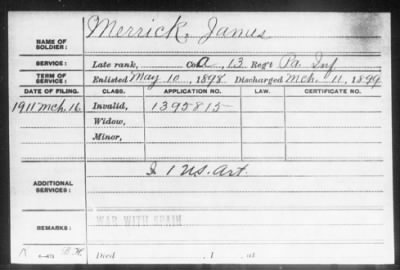 NAME OF SOLDIER: Merrick, James
SERVICE: Late rank, Co. A, 13 Reg't Pa. Inf
TERM OF SERVICE: Enlisted May 10, 1898, Discharged Mch. 11, 1899
DATE OF FILING. CLASS. APPLICATION NO. LAW. CERTIFICATE NO.
1911 Mch. 16. Invalid, 1395815
Widow,
Minor,
ADDITIONAL SERVICES: I 1 U.S. Art.
REMARKS: WAR WITH SPAIN
Died , 1 , at